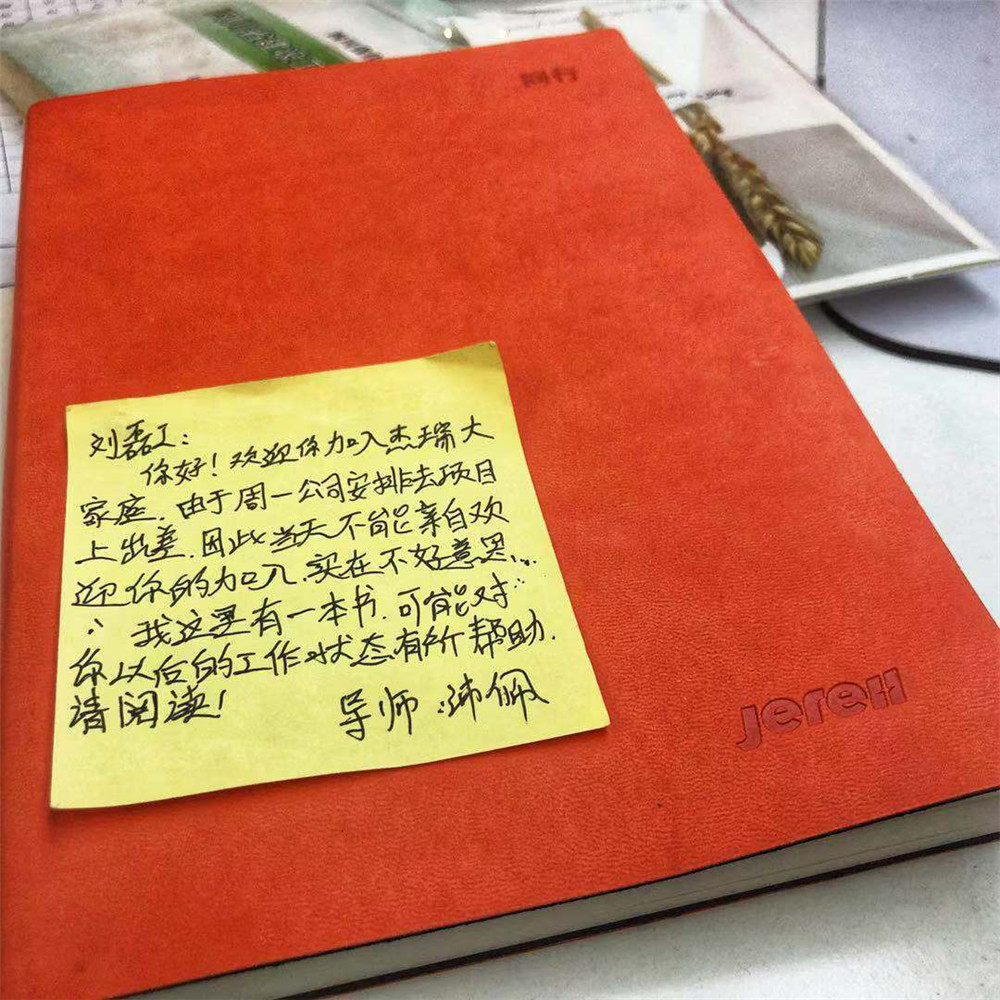 同行
刘磊工:
你好!欢迎你加入杰瑞大
家庭.由于周一公司安排去项目
上出差.因此当天不能亲自欢
迎你的加入.实在不好意思...
我这里有一本书.可能对
你以后的工作状态有所帮助.
请阅读!
导师:沛佩
Jereh